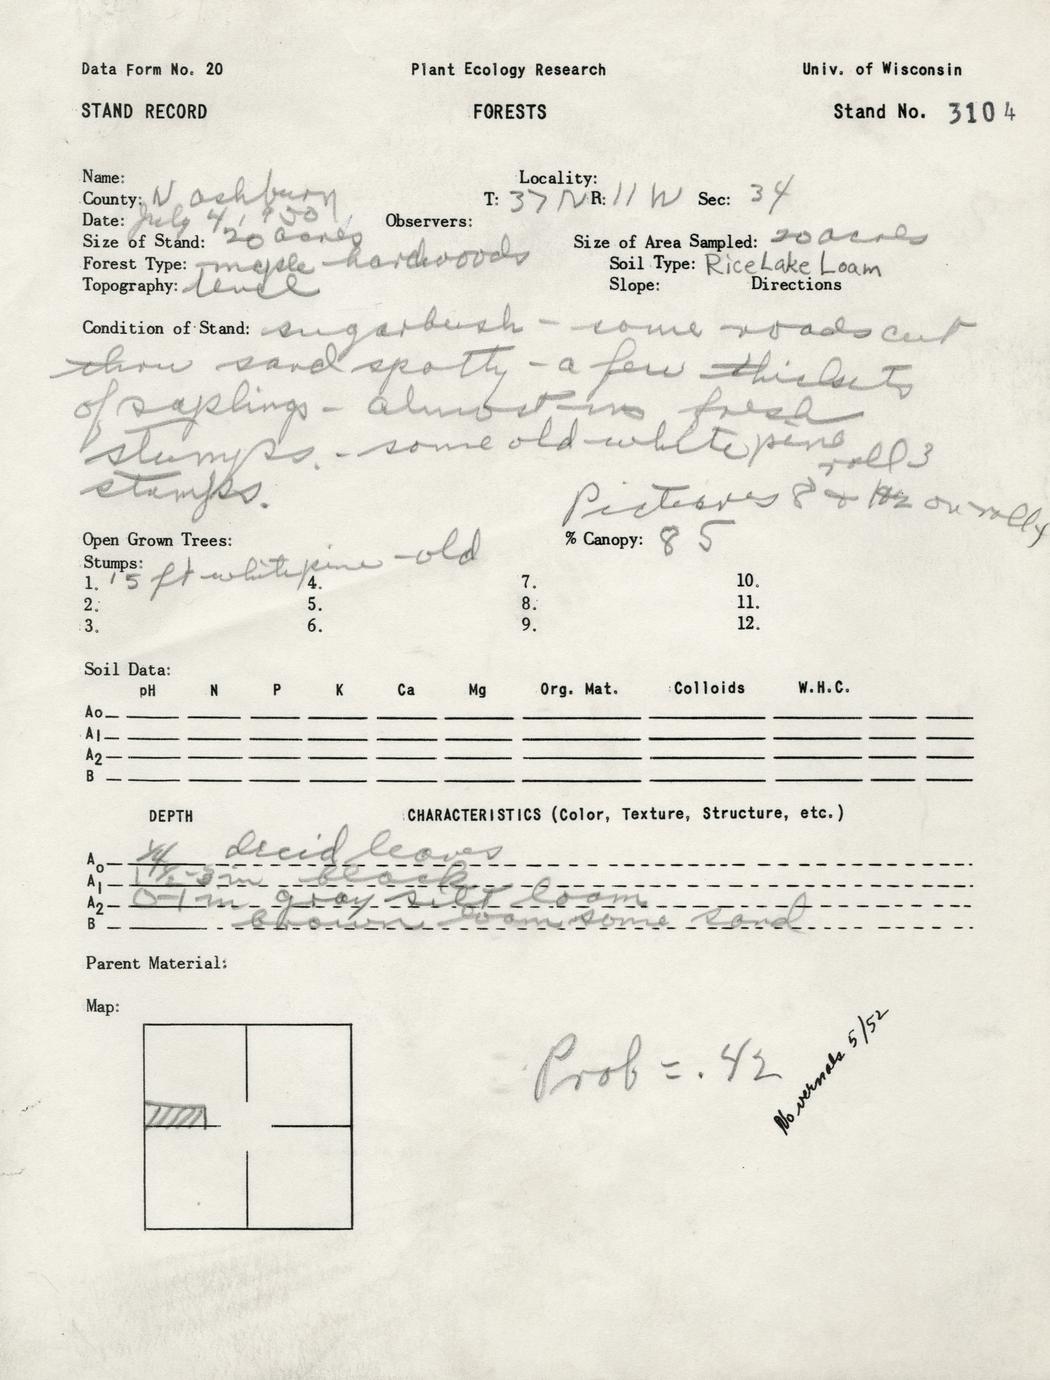 Data Form No. 20 Plant Ecology Research Univ. of Wisconsin
STAND RECORD FORESTS Stand No. 3104
Name: Locality:
County: Washburn T: 37 N R: 11 W Sec: 34
Date: July 4, 1950 Observers:
Size of Stand: 20 acres Size of Area Sampled: 20 acres
Forest Type: maple hardwoods Soil Type: Rice Lake Loam
Topography: level Slope: Directions
Condition of Stand: sugarbush - some roads cut
thru sand spotty - a few thickets
of saplings - almost no fresh
stumps. - some old white pine
roll 3
stumps.
Pictures 8 on
Open Grown Trees: % Canopy: 85
Stumps:
1. 15 ft white pine - old 4. 7. 10.
2. 5. 8. 11.
3. 6. 9. 12.
Soil Data:
pH N P K Ca Mg Org. Mat. Colloids W.H.C.
Ao
A1
A2
B
DEPTH CHARACTERISTICS (Color, Texture, Structure, etc.)
Ao decid leaves
A1 black
A2 0-1 in gray silt loam
B brown loam some sand
Parent Material:
Map:
Prob = .42
No vernals 5/52